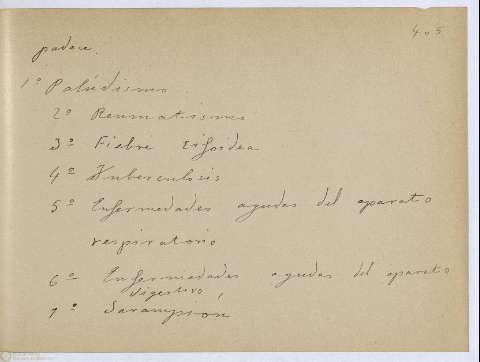 405
padece.
1º Palúdismo
2º Reumatismo
3º Fiebre tifoidea
4º Tuberculosis
5º Enfermedades agudas del aparato
respiratorio
6º Enfermedades agudas del aparato
digestivo,
7º Sarampión